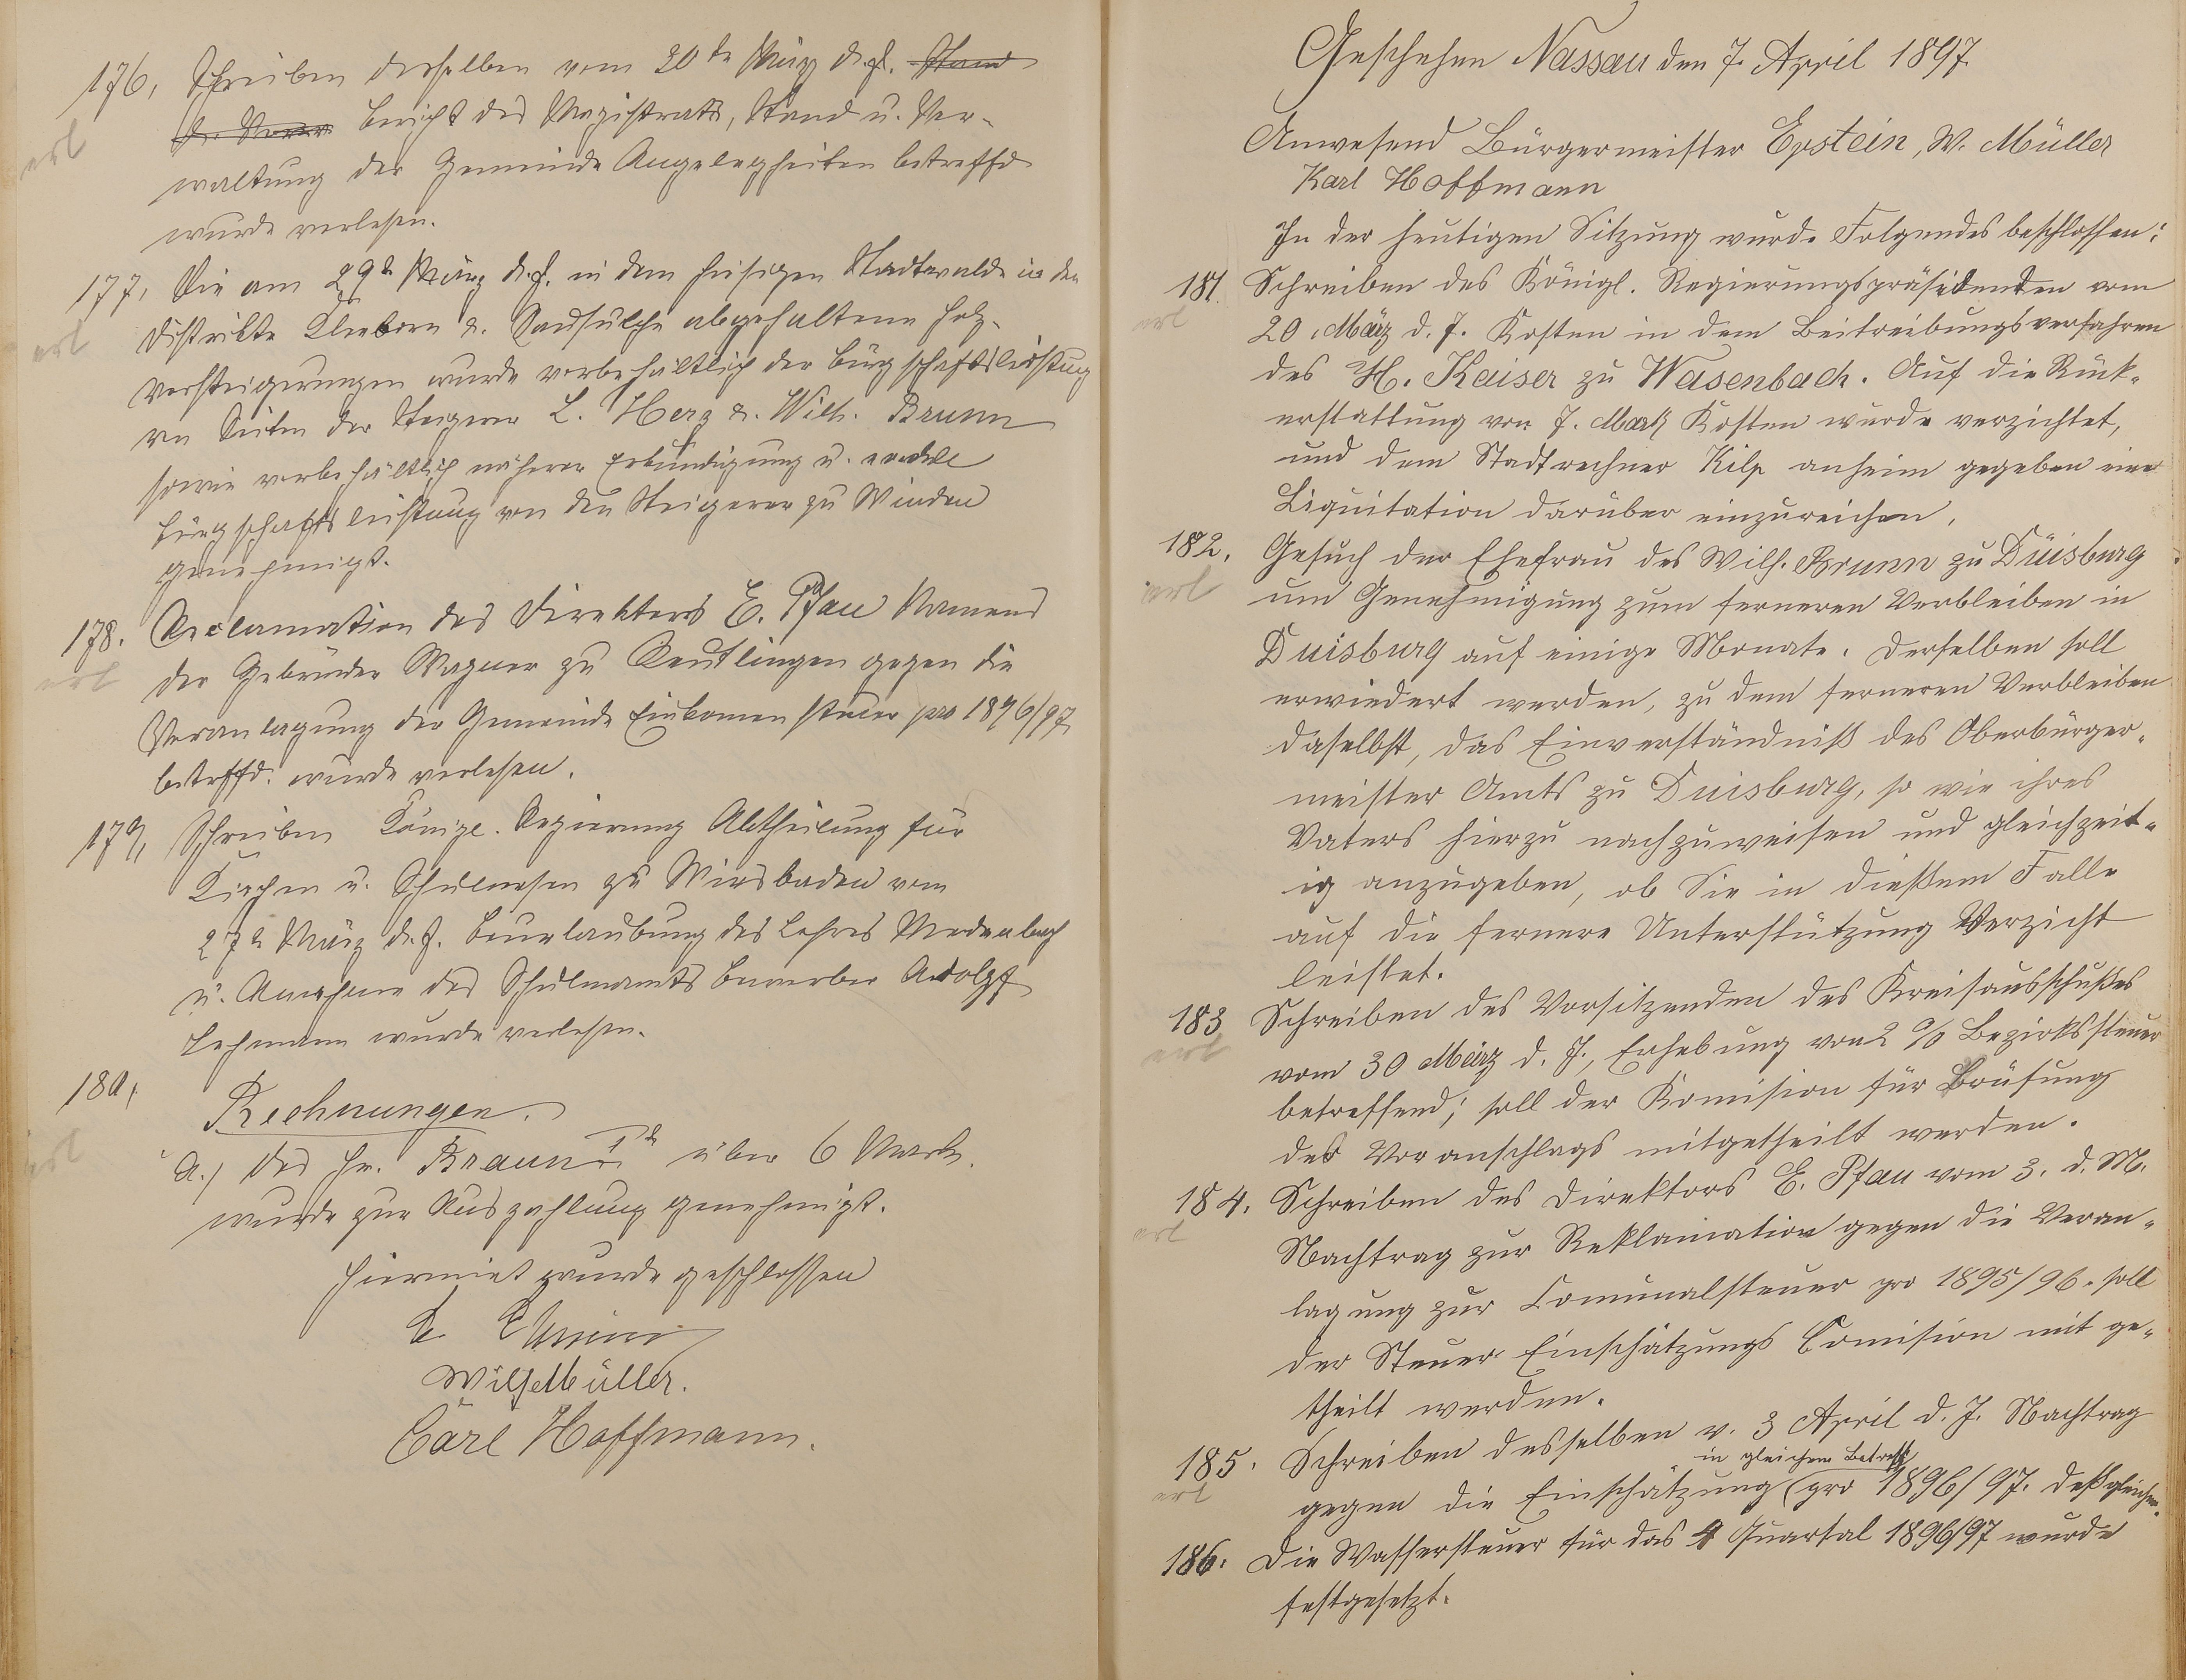 176, Schreiben desselben vom 30te März d. J. Stand
u. Verw Bericht des Magistrats, Stand u. Ver-
erl
waltung der Gemeinde Angelegheiten betreffd
wurde verlesen.
177, Die am 29te März d. J. in dem hiesigen Stadtwalde in den
erl
Distrikte abgehaltene Holz-
versteigerungen wurde vorbehältlich der Bürgschaftsleistung
von Seiten der Steigerer L. Herz u. Wilh. Brunn
sowie vorbehältlich näherer Erkundigung u.
Bürgschaftsleistung von den Steigerer zu Winden
genehmigt.
178. Reclamation des Direktors E. Pfau Namens
erl
der Gebrüder Wagner zu Reutlingen gegen die
Veranlagung der Gemeinde Einkomensteuer pro 1896/97
betrffd. wurde verlesen.
179, Schreiben Königl. Regierung Abtheilung für
Kirchen u. Schulwesen zu Wiesbaden vom
27te März d. J. Beurlaubung des Lehres Medenbach
u. Annahme des Schulamts Bewerber Adolpf
Lehmann wurde verlesen.
180,
Rechnungen.
erl
a.) des Hr. Braun Ite über 6 Mark.
wurde zur Auszahlung genehmigt.
Hiermit wurde geschlossen
Wilh Müller.
Carl Hoffmann.
Geschehen Nassau den 7. April 1897.
Anwesend Bürgermeister Epstein, W. Müller
Karl Hoffmann
In der heutigen Sitzung wurde Folgendes beschlossen:
181. Schreiben des Königl. Regierungspräsidenten vom
erl
20. März d. J. Kosten in dem Beitreibungsverfahren
des H. Kaiser zu Wasenbach. Auf die Rück-
erstattung von 7. Mark Kosten wurde verzichtet,
und dem Stadtrechner Kilp anheim gegeben eine
Liquitation darüber einzureichen.
182. Gesuch der Ehefrau des Wilh. Brunn zu Duisburg
erl
um Genehmigung zum ferneren Verbleiben in
Duisburg auf einige Monate. Derselben soll
erwiedert werden, zu dem ferneren Verbleiben
daselbst, das Einverständniß des Oberbürger-
meister Amts zu Duisburg, so wie ihres
Vaters hierzu nachzuweisen und gleichzeit-
ig anzugeben, ob Sie in dießem Falle
auf die fernere Unterstützung Verzicht
leistet.
183 Schreiben des Vorsitzenden des Kreisausschußes
erl
vom 30 März d. J., Erhebung von 2 % Bezirkssteuer
betreffend; soll der Komision für Prüfung
des Voranschlags mitgetheilt werden.
184. Schreiben des Direktors E. Pfau vom 3. d. M.
erl
Nachtrag zur Reklamation gegen die Veran-
lagung zur Comunalsteuer pro 1895/96. soll
der Steuer Einschätzungs Comision mit ge-
theilt werden.
185. Schreiben desselben v. 3 April d. J. Nachtrag
in gleichem Betreff
erl
gegen die Einschätzung (pro 1896/97. deßgleichen.
186. Die Wassersteuer für das 4 Quartal 1896/97 wurde
festgesetzt.